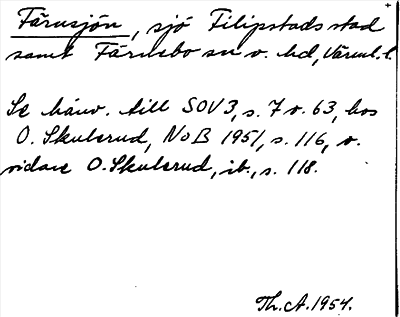 Färnsjön, sjö Filipstads stad
samt Färnebo sn o. hd, Värml. l.
Se hänv. till SOV 3, s. 7 o. 63, hos
O. Skulerud, NoB 1951, s. 116, o.
vidare O. Skulerud, ib., s. 118.
Th. A. 1954.